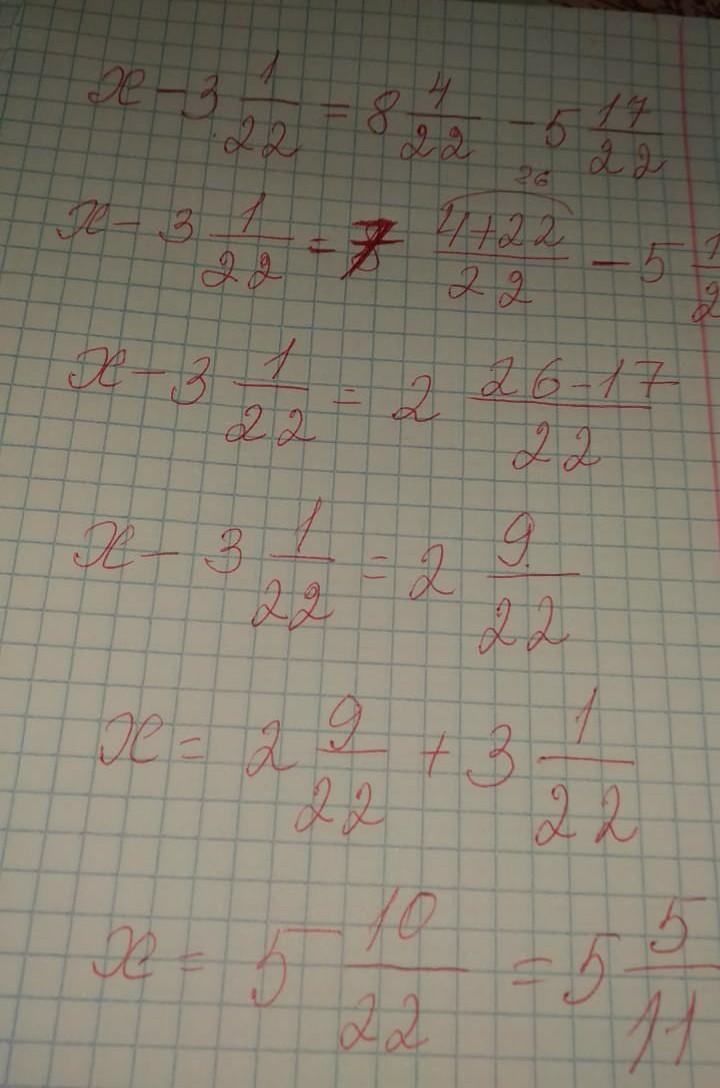 x - 3 1/22 = 8 4/22 - 5 17/22
26
x - 3 1/22 = 7 (4+22)/22 - 5 1/2
x - 3 1/22 = 2 (26-17)/22
x - 3 1/22 = 2 9/22
x = 2 9/22 + 3 1/22
x = 5 10/22 = 5 5/11